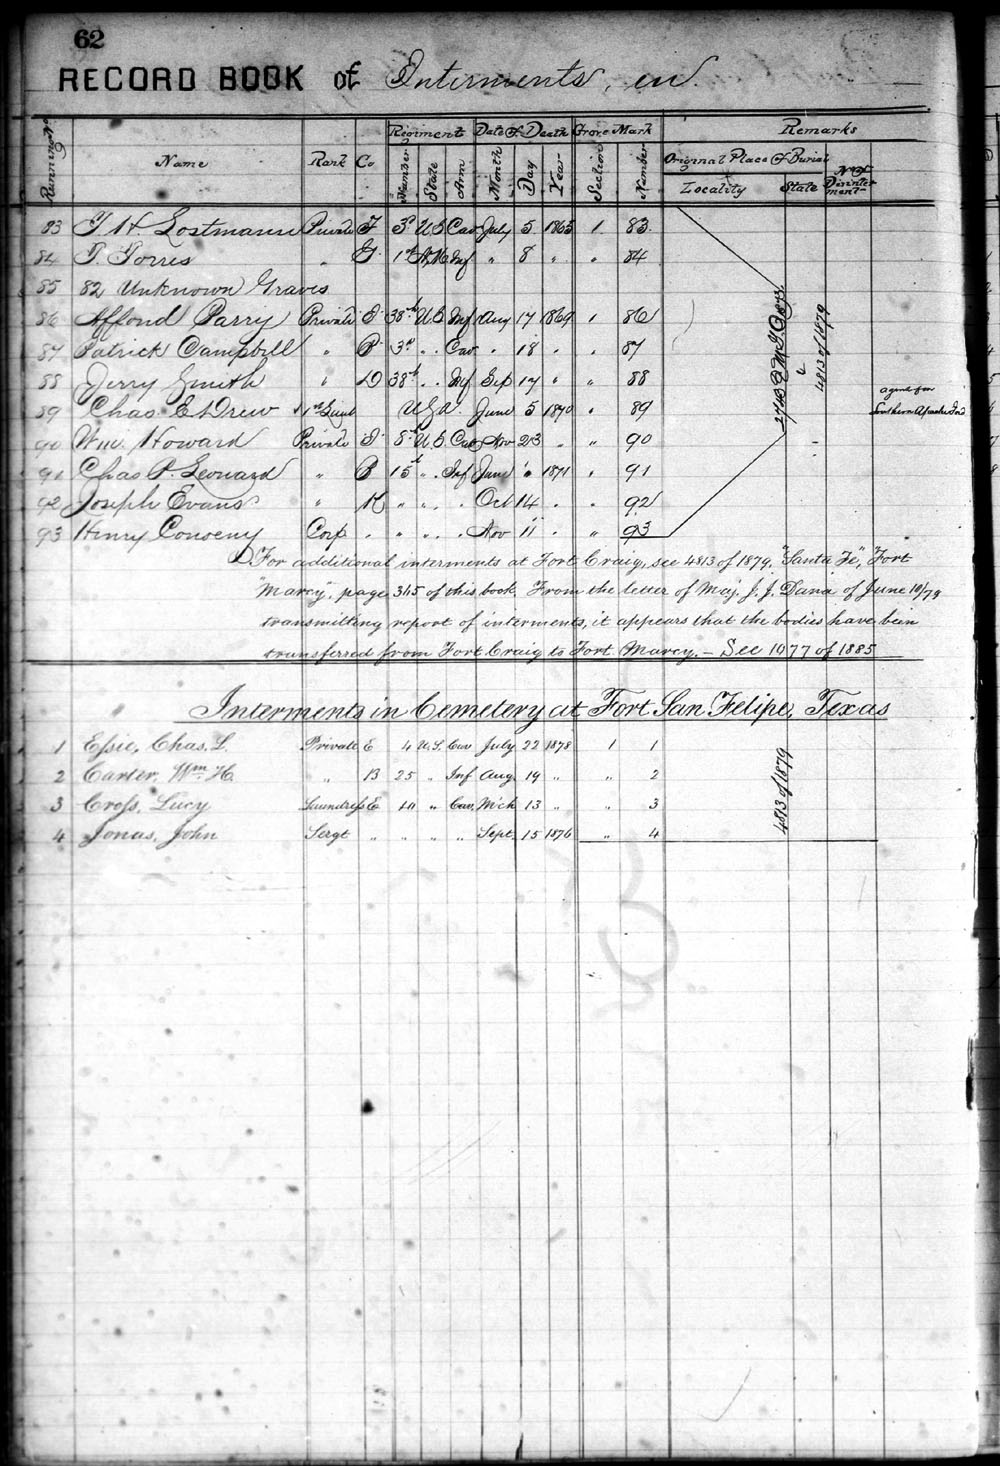 62
RECORD BOOK of Interments, in
Running No Name Rank Co Regiment Date of Death Grave Mark Remarks
Number State Arm Month Day Year Section Number Original Place of Burial No of Disinterment
Locality State
83 T H Lostmann Private F 3d U S Cav July 5 1865 1 83
84 P. Torres " G 1st N M Inf " 8 " " 84
85 82 Unknown Graves
86 Affond Parry Private I 38th U S Inf Aug 17 1869 1 86
87 Patrick Campbell " 3d " " Cav " 18 " " 87
88 Jerry Smith " D 38th " " Inf Sep 17 " " 88
89 Chas E Drew 1st Lieut U S A June 5 1870 " 89 agent for Southern Apache Ind
90 Wm. Howard Private I 8th U S Cav Nov 23 " " 90
91 Chas P. Leonard " B 15th " " Inf June " 1871 " 91
92 Joseph Evans " K " " " " Oct 14 " " 92
93 Henry Conveny Corp " " " " " Nov 11 " " 93
2743 Q M G O 1873
&
4813 of 1879
For additional interments at Fort Craig, see 4813 of 1879, "Santa Fe", "Fort
Marcy", page 345 of this book. From the letter of Maj. J. J. Dana of June 10/79
transmitting report of interments, it appears that the bodies have been
transferred from Fort Craig to Fort Marcy. – See 1077 of 1885
Interments in Cemetery at Fort San Felipe, Texas
1 Essic, Chas. L. Private E 4 U.S. Cav July 22 1878 1 1
2 Carter, Wm. H. " B 25 " Inf Aug. 19 " " 2
3 Cross, Lucy Laundress E 10 " Cav. Mch 13 " " 3
4 Jonas, John Sergt " " " " Sept. 15 1876 " 4
4813 of 1879